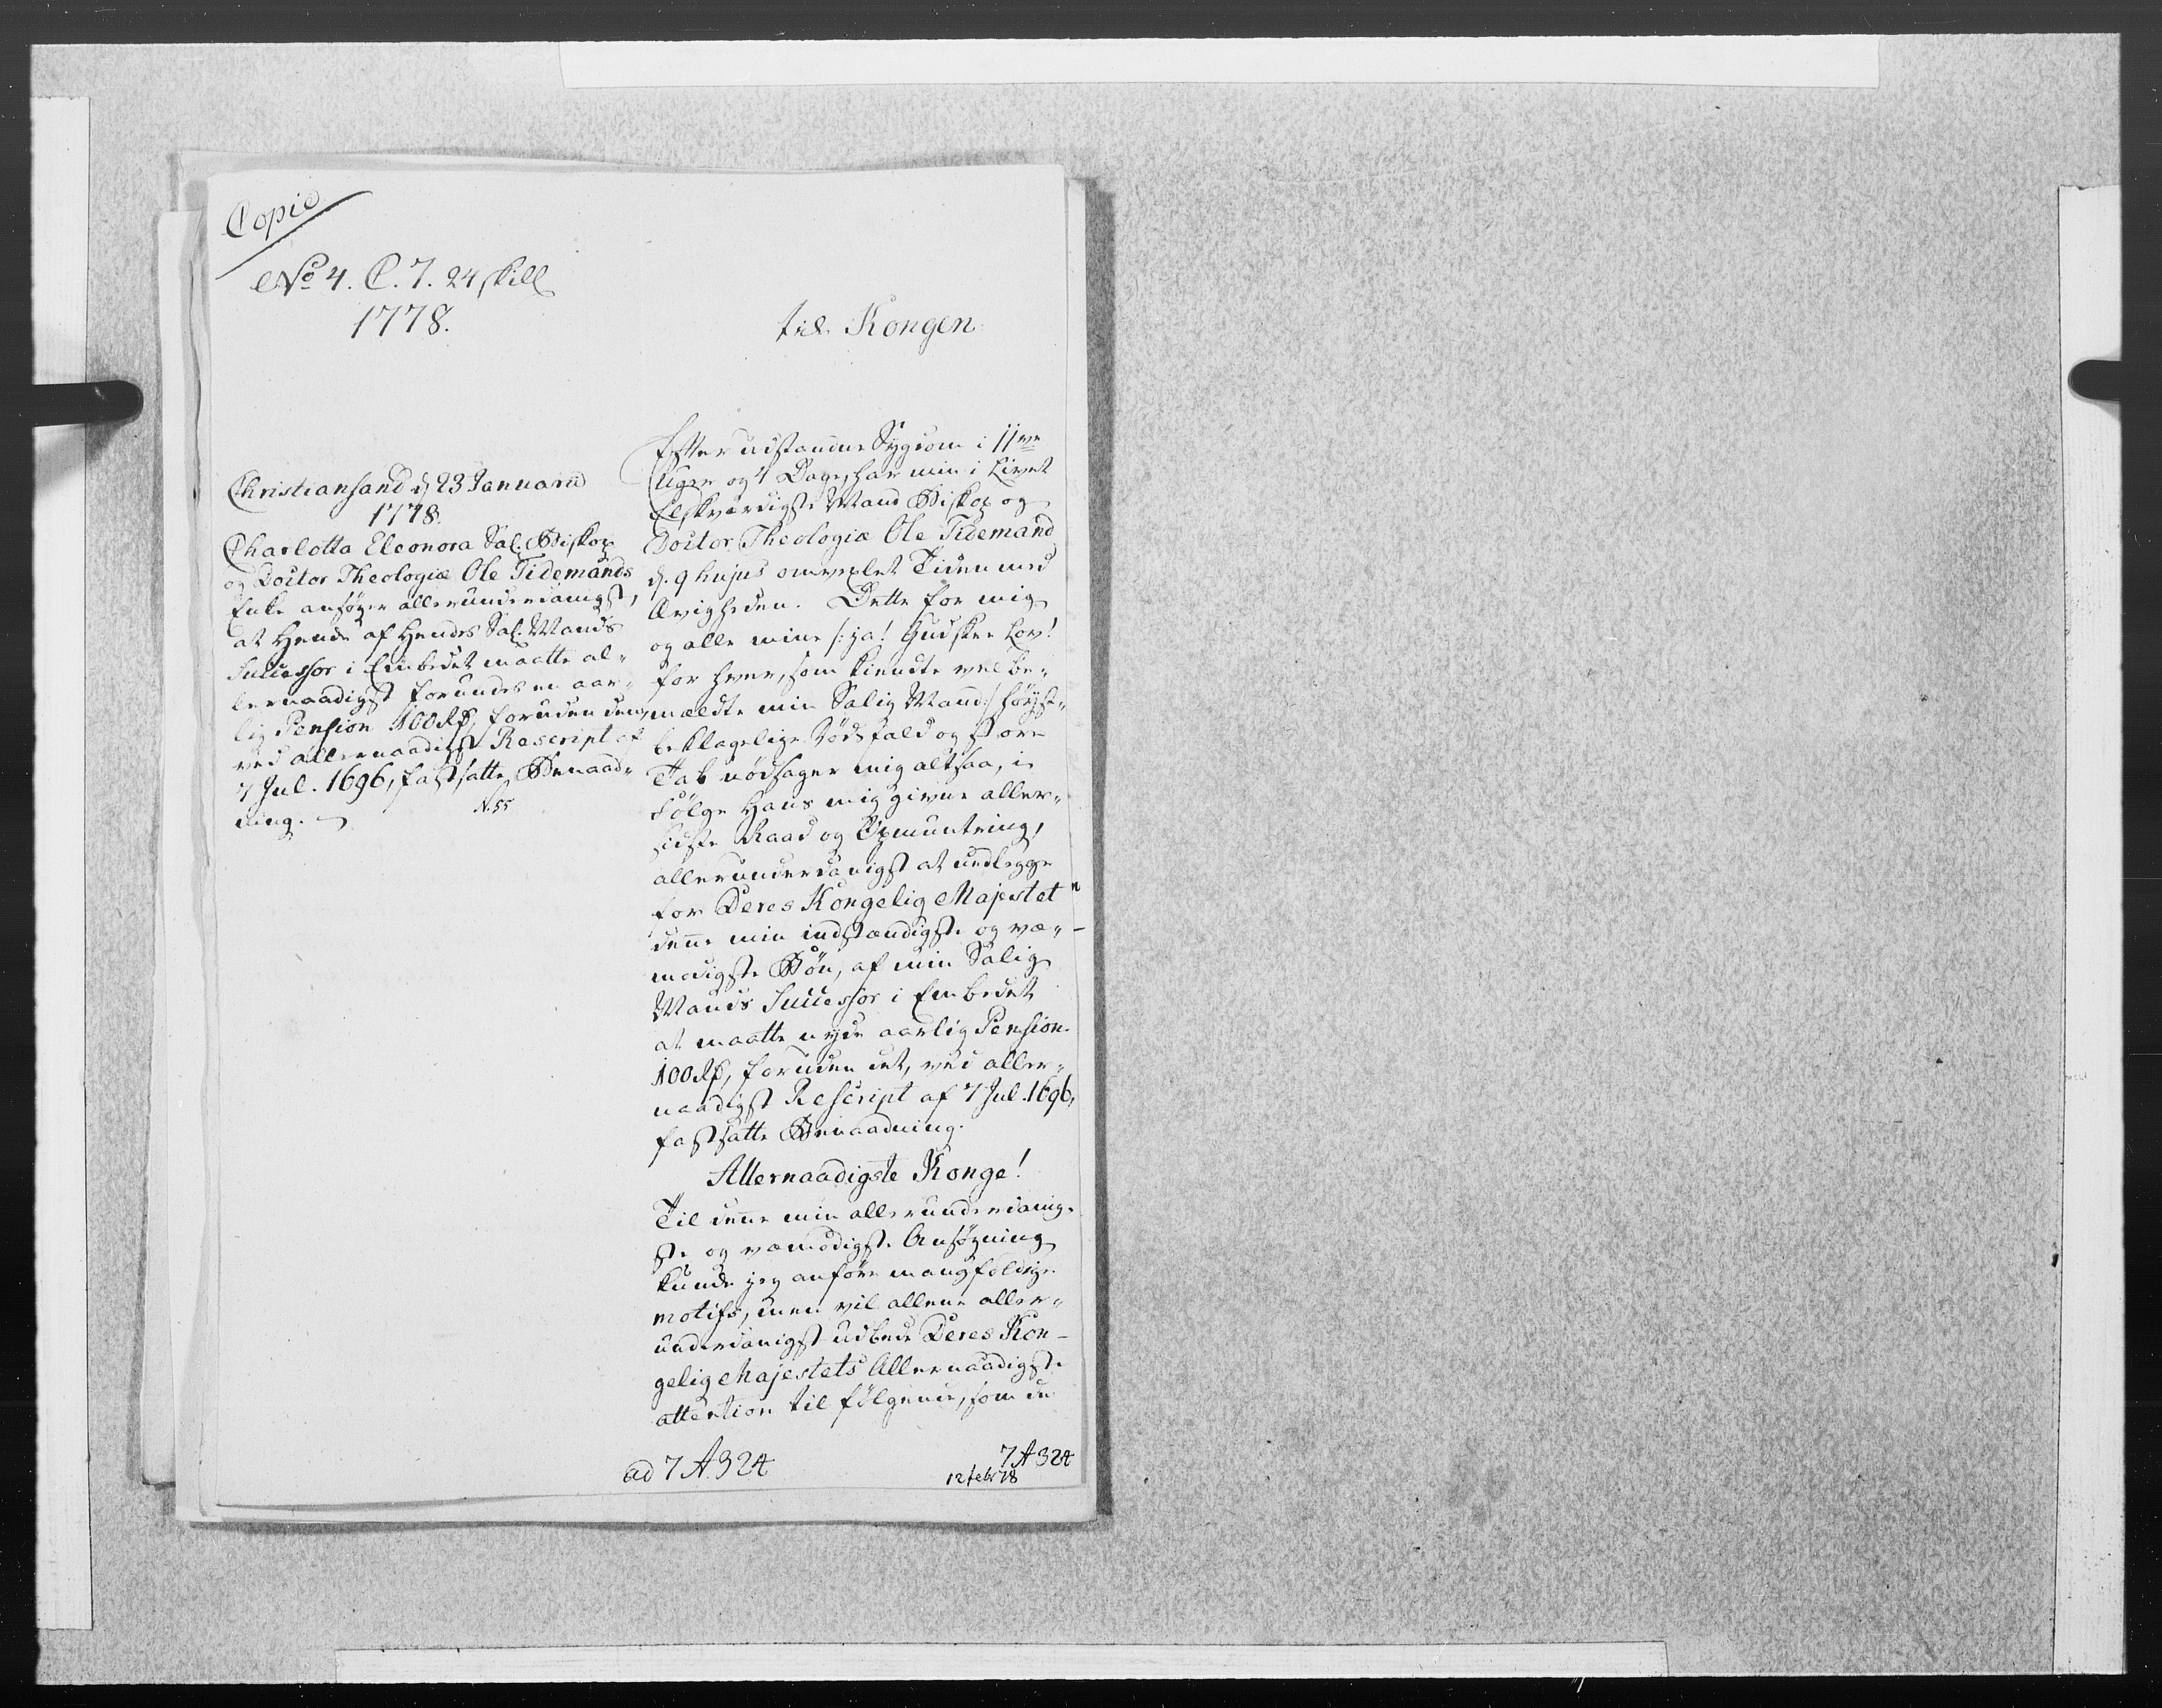 Copie
No 4. C. 7. 24 skill
1778.
til Kongen
Christiansand d 23 Januarii
1778.
Charlotta Eleonora Sal. Biskop
og Doctor Theologiæ Ole Tidemands
Enke ansøger allerunderdanigst,
at Hende af Hendes Sal. Mands
Successor i Embedet maatte al„
lernaadigst forundes en aar„
lig Pension 100 Rd, foruden den,
ved allernaadigst Rescript af
7 Jul. 1696, fastsatte Benaad„
ning.
Efter udstanden Sygdom i 11ve
Uger og 4 Dage, har min i Livet
Elskværdigste Mand Biskop og
Doctor Theologiæ Ole Tidemand
d. 9 hujus omvexlet Tiden med
Ævigheden. Dette for mig
og alle mine /: ja! Gud skee Lov!
for hver, som kiendte vel be„
meldte min Salig Mand :/ høyst„
beklagelige Dødsfald og store
Tab nødsager mig altsaa, i
Følge Hans mig givne aller„
sidste Raad og Opmuntring,
allerunderdanigst at nedlegge
for Deres Kongelig Majestet
denne min indstændigste og væ„
modigste Bøn, af min Salig
Mands Successor i Embedet
at maatte nyde aarlig Pension
100 Rd, foruden det, ved aller„
naadigst Rescript af 7 Jul. 1696,
fastsatte Benaadning.
Allernaadigste Konge!
Til denne min allerunderdanig„
ste og væmodigste Ansøgning
kunde jeg anføre mangfoldige
motifs, men vil allene aller„
underdanigst udbede Deres Kon-
gelig Majestets Allernaadigste
attention til følgende, som de
ad 7 A 324
7 A 324
12 febr 78